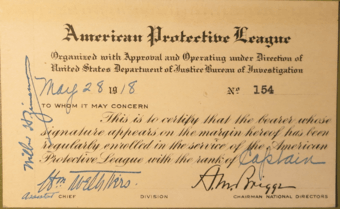 American Protective League
Organized with Approval and Operating under Direction of
United States Department of Justice, Bureau of Investigation
May 28 1918
No 154
TO WHOM IT MAY CONCERN
This is to certify that the bearer whose
signature appears on the margin hereof has been
regularly enrolled in the service of the American
Protective League with the rank of Captain
A M Briggs
Assistant CHIEF
DIVISION
CHAIRMAN NATIONAL DIRECTORS